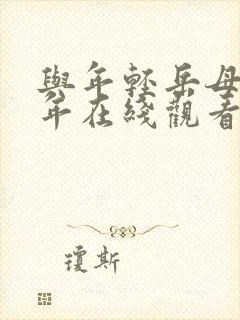 與年輕岳母
年在綫觀看
瓊斯